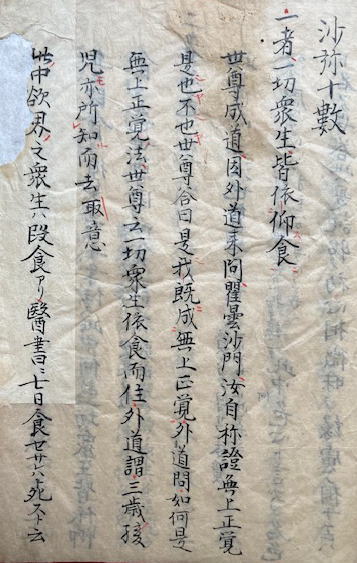 沙弥十數
一者一切衆生皆依仰食
世尊成道因外道来問瞿曇沙門汝自称證無上正覚
是也不也世尊答曰是我既成無上正覚外道問如何是
無上正覚法世尊云一切衆生依食而住外道謂三歳孩
児亦所知而去取意
此中欲界之衆生ハ段食アリ醫書ニ七日食セサレハ死スト云